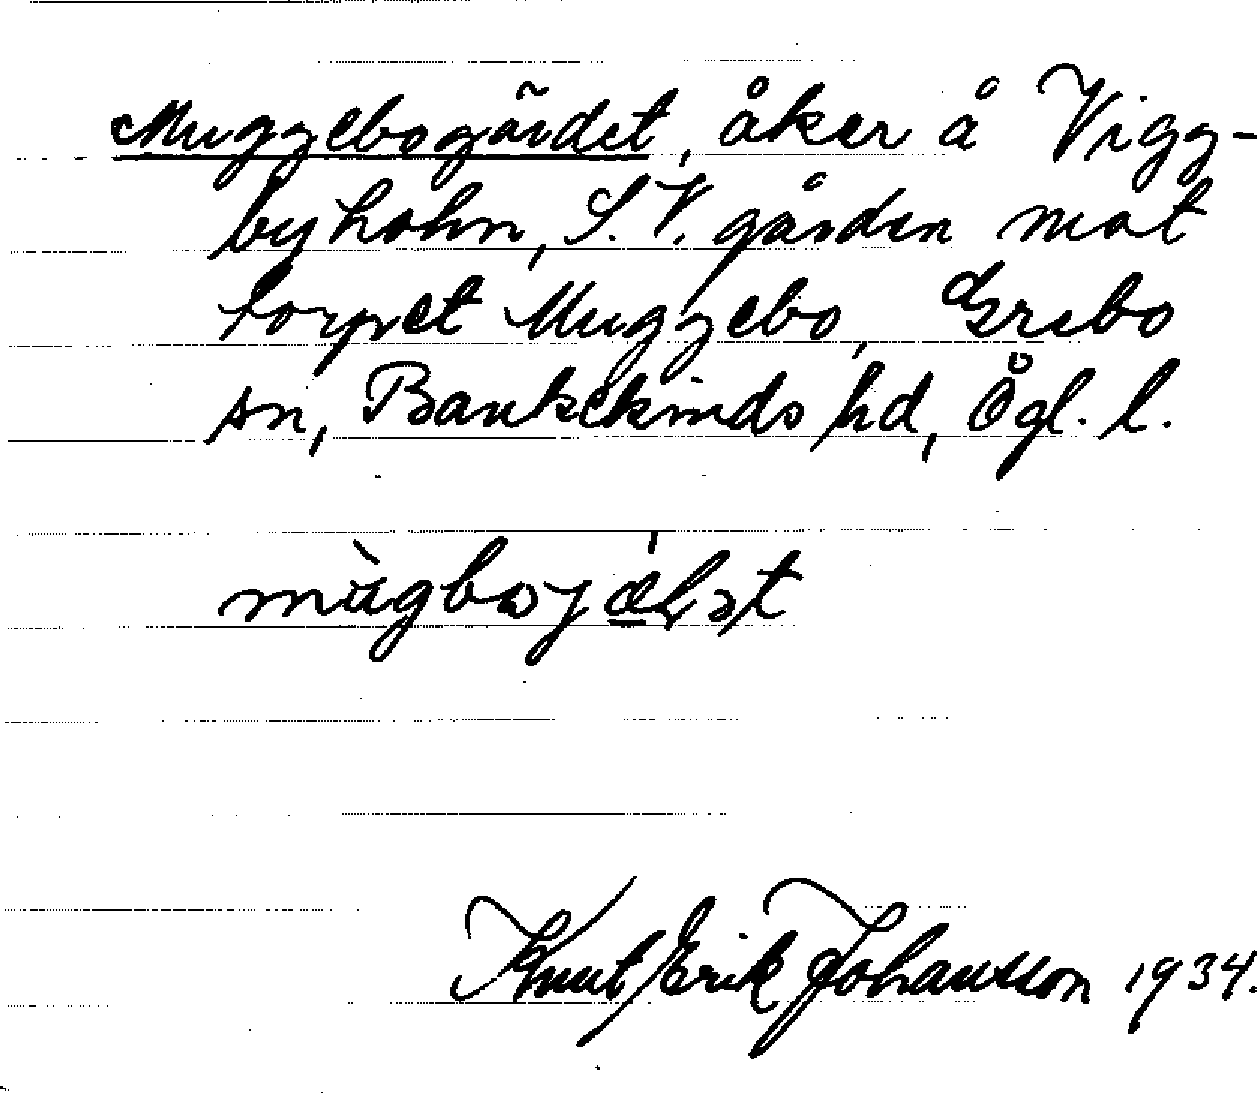 Muggebogärdet, åker å Vigg-
byholm, S.V. gården mot
torpet Muggebo, Grebo
sn, Bankekinds hd, Ögl. l.
Knut Erik Johansson 1934.